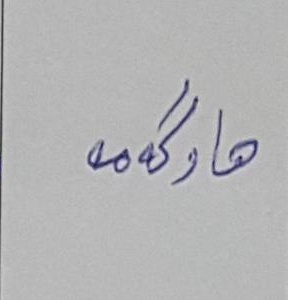 هاوگەمە